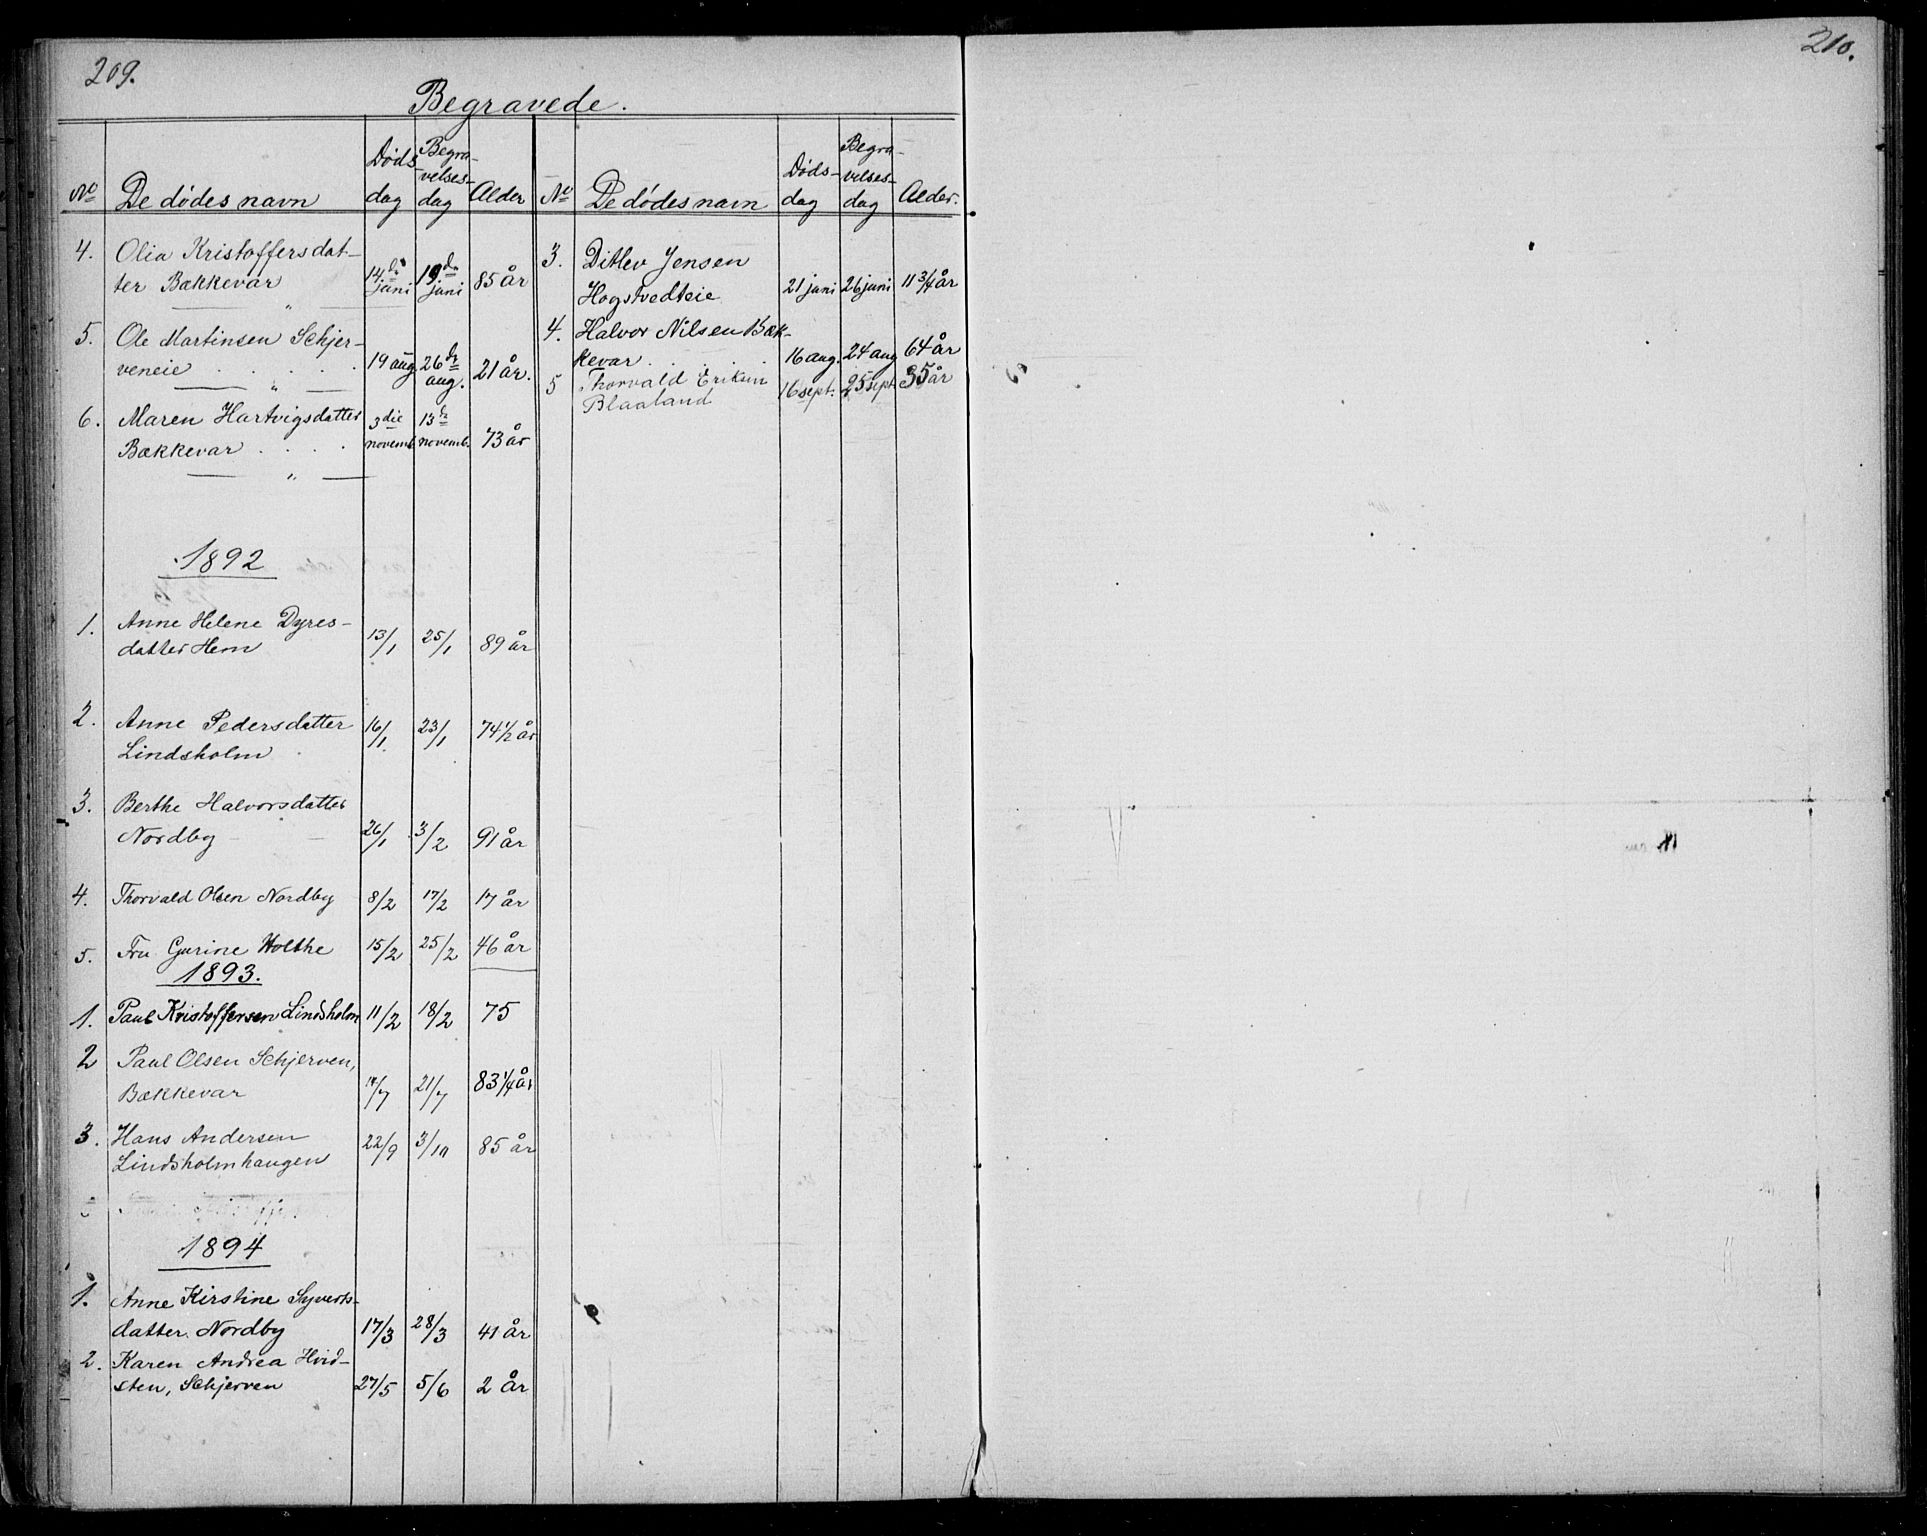 209.
Begravede.
No De dødes navn Døds dag Begra-velses-dag Alder
4. Olia Kristoffersdat-
ter Bækkevar 14.de juni 19.de juni 85 år
5. Ole Martinsen Schjer-
veneie . . . . . 19 aug 26de aug. 21 år.
6. Maren Hartvigsdatter
Bækkevar . . . . 3die novemb. 13de novemb. 73 år
1892
1. Anne Helene Dyres-
datter Hem 13/1 25/1 89 år
2. Anne Pedersdatter
Lindsholm 16/1 23/1 74 1/2 år
3. Berthe Halvorsdatter
Nordby 26/1 3/2 91 år
4. Thorvald Olsen Nordby 8/2 17/2 17 år
5. Fru Gurine Holthe 15/2 25/2 46 år
1893.
1. Paul Kristoffersen Lindsholm 11/2 18/2 75
2 Paul Olsen Schjerven,
Bækkevar 21/7 83 1/4 år
3. Hans Andersen
Lindsholmhaugen 22/9 3/10 85 år
1894
1. Anne Kirstine Syverts-
datter. Nordby 17/3 28/3 41 år
2. Karen Andrea Hvid-
sten, Schjerven 27/5 5/6 2 år
No De dødes navn Døds-dag Begra-velses-dag Alder.
3. Ditlev Jensen
Hogstvedteie 21 juni 26 juni 11 3/4 år
4. Halvor Nilsen Bæk-
kevar . . . . . 16 aug. 24 aug 64 år
5 Thorvald Eriksen
Blaaland 16 sept. 25 sept 35 år
210.